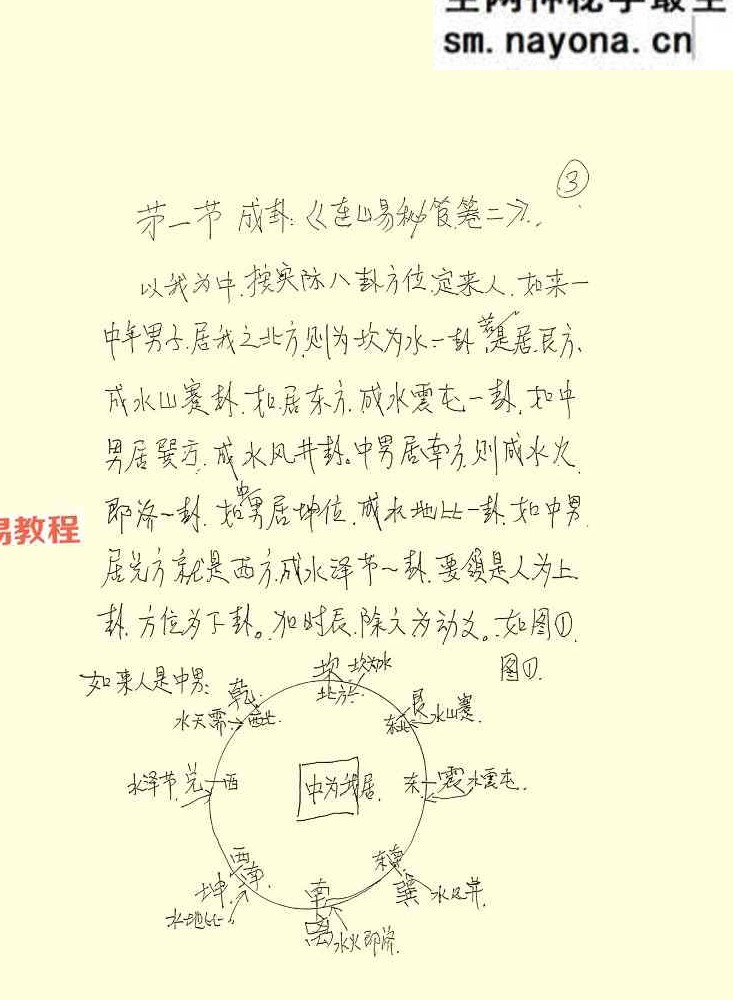 sm.nayona.cn
③
第一节 成卦:《连山易秘笈卷二》..
以我为中.按实际八卦方位.定来人.如来一
中年男子.居我之北方,则为坎为水一卦,若是居艮方、
成水山蹇卦.如居东方.成水雲屯一卦,如中
男居巽方.成水风井卦。中男居南方,则成水火
即济一卦.如中男居坤位.成水地比一卦.如中男
居兑方就是西方.成水泽节一卦.要领是人为上
卦.方位为下卦。加时辰.除六为动爻。.如图①.
易教程
如来人是中男:
图①.
坎 坎为水
北方
乾
水天需 西北
艮
东北 水山蹇.
水泽节 兑 西
中为我居.
东 震 水雲屯.
西南
坤
水地比
南
离 水火即济.
东南
巽 水风井.